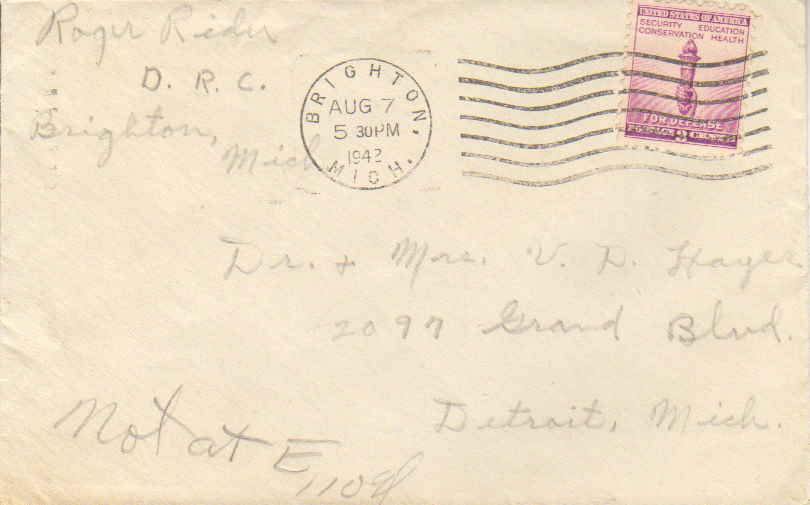 Roger Rider
D. R. C.
Brighton,
Mich
BRIGHTON,
AUG 7
5 30PM
1942
MICH.
UNITED STATES OF AMERICA
SECURITY EDUCATION
CONSERVATION HEALTH
FOR DEFENSE
POSTAGE 3 CENTS
Dr. + Mrs. V. D. Hayes
2097 Grand Blvd.
Detroit, Mich.
Not at E